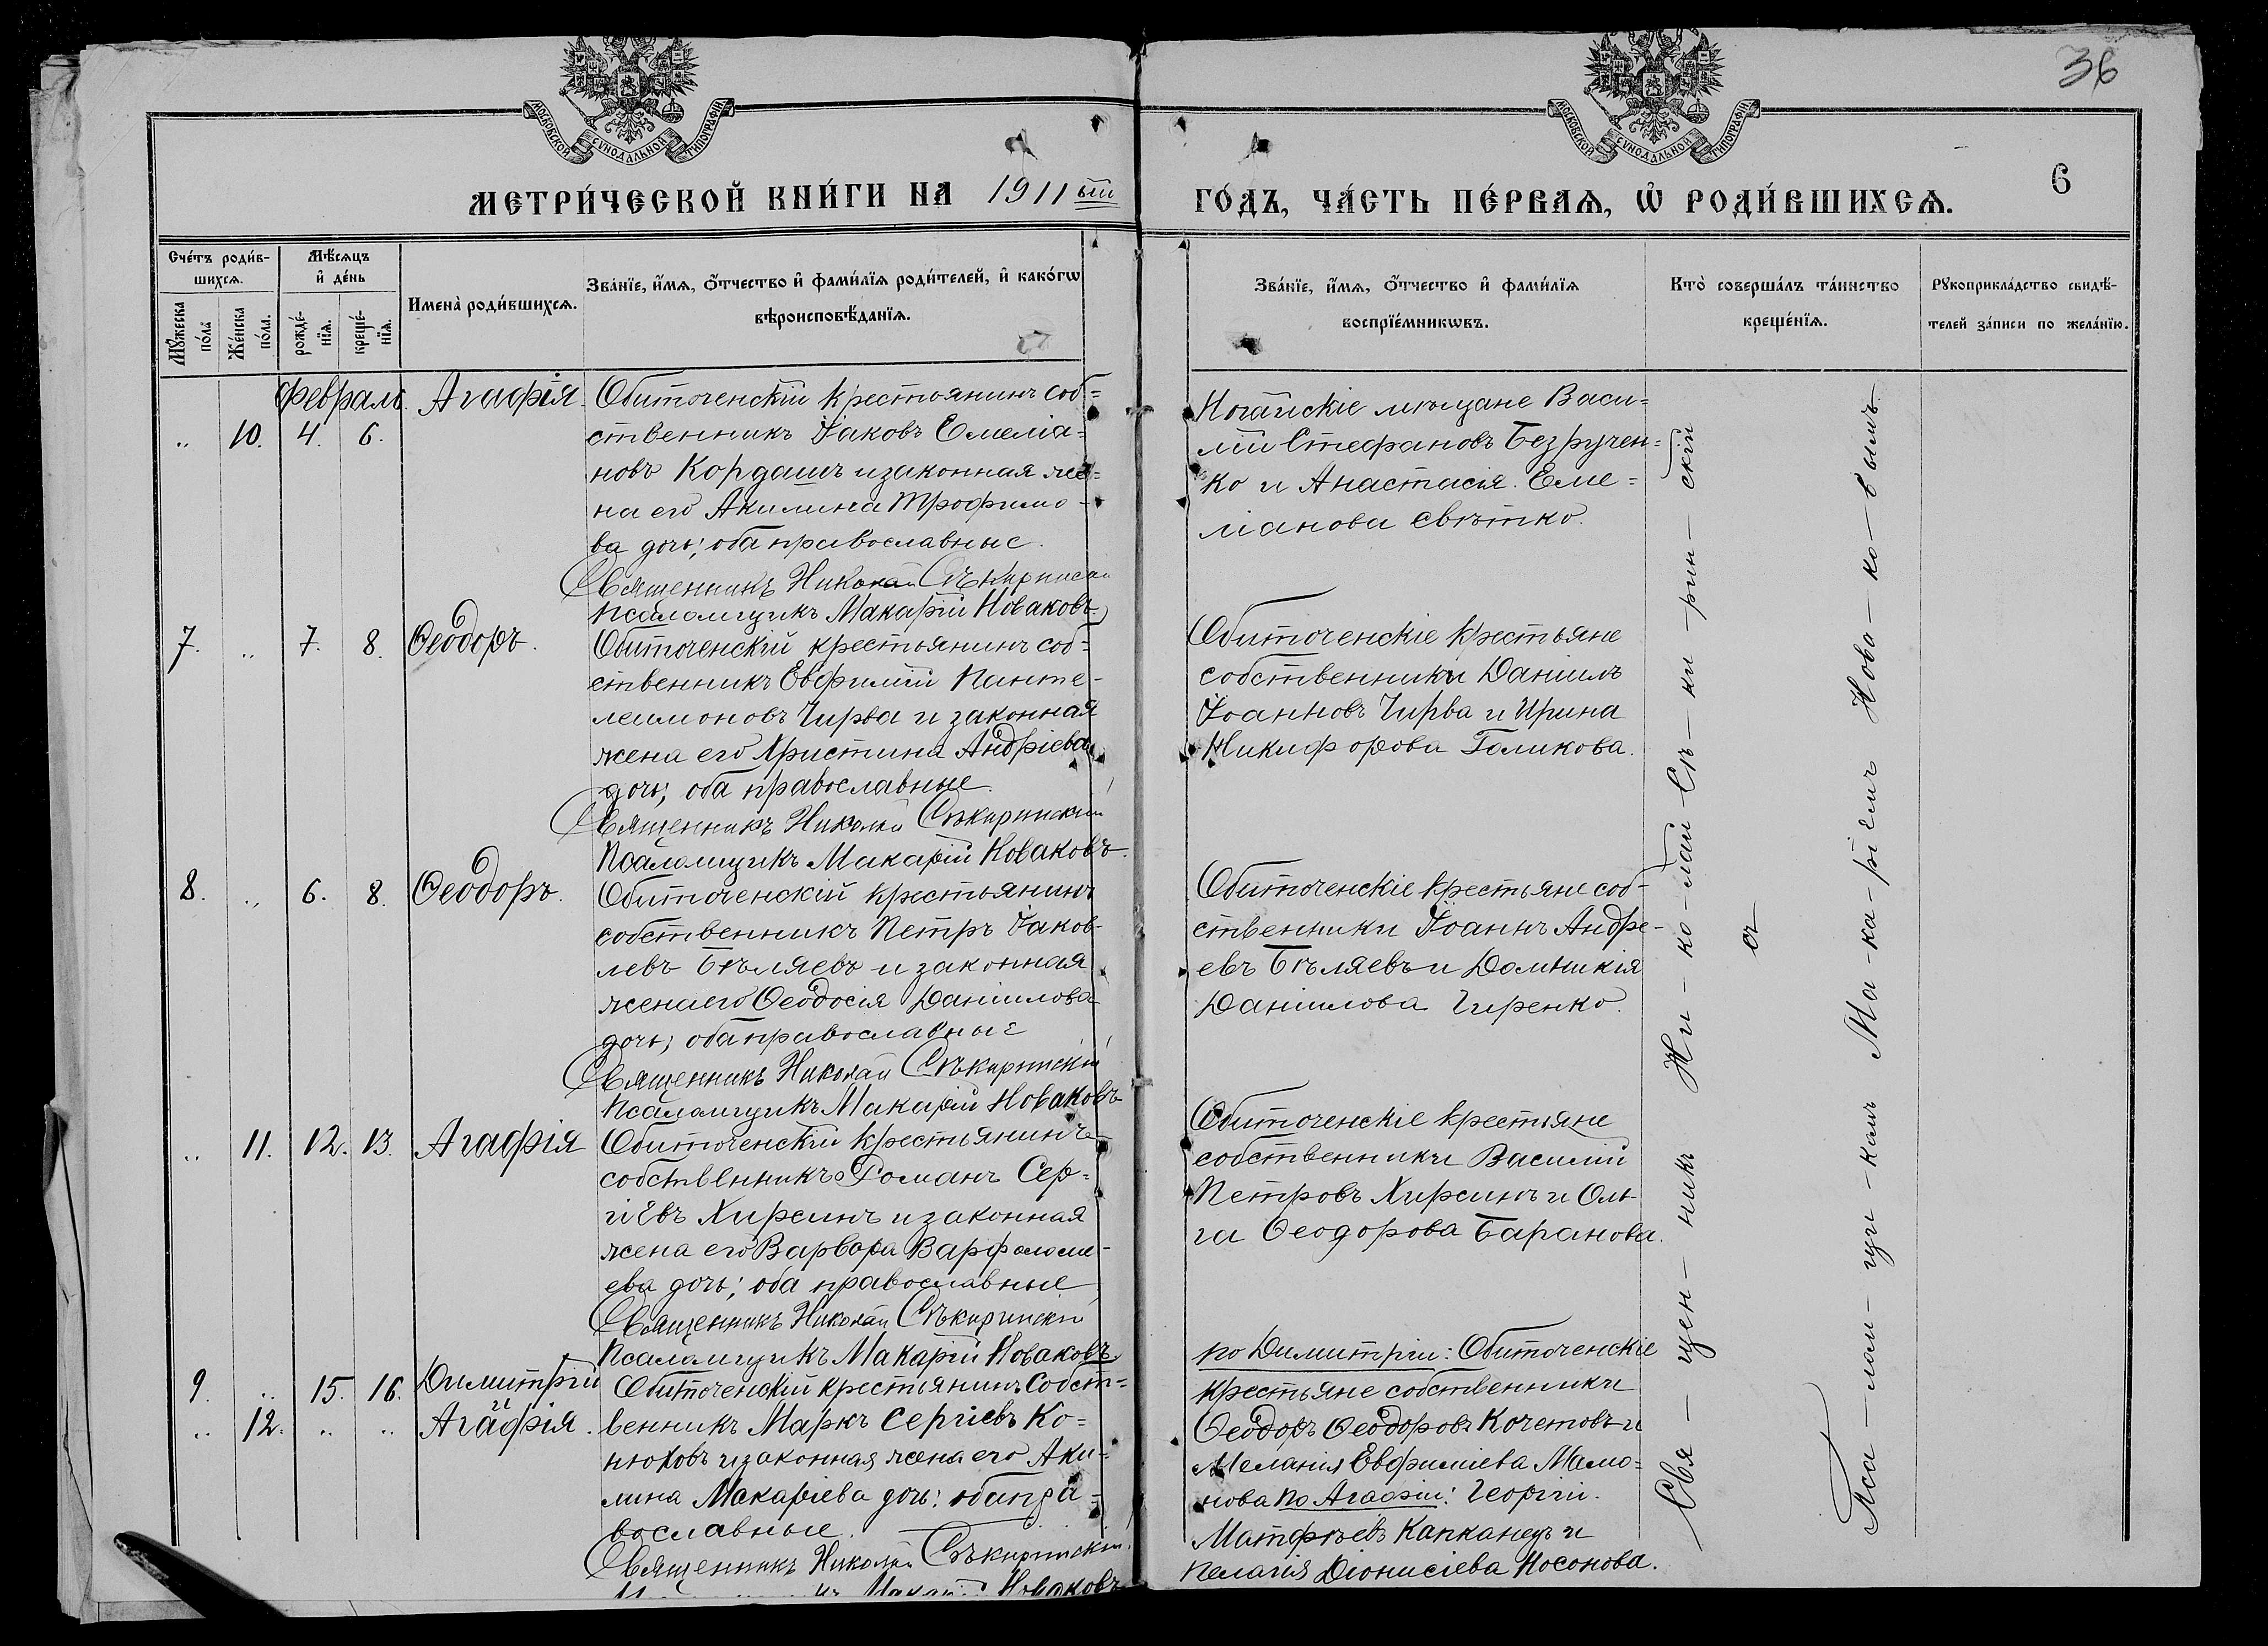 36
МОСКОВСКОЙ СУНОДАЛЬНОЙ ТИПОГРАФІИ
МОСКОВСКОЙ СУНОДАЛЬНОЙ ТИПОГРАФІИ
6
МЕТРИ́ЧЕСКОЙ КНИ́ГИ НА 1911 ый
ГО́ДЪ, ЧА́СТЬ ПЕ́РВАѦ, Ѡ҆ РОДИ́ВШИХСѦ.
Сче́тъ роди́в-
шихсѧ.
Мꙋ́жеска
по́ла
Же́нска
по́ла.
Мѣ́сѧцъ
и҆ де́нь
рожде́-
нїѧ.
креще́-
нїѧ.
Имена̀ роди́вшихсѧ.
Зва́нїе, и҆́мѧ, ѻ҆́тчество и҆ фами́лїѧ роди́телей, и҆ како́гѡ
вѣроисповѣ́данїѧ.
Зва́нїе, и҆́мѧ, ѻ҆́тчество и҆ фами́лїѧ
воспрїе́мникѡвъ.
Кто̀ соверша́лъ та́инство
креще́нїѧ.
Рꙋкоприкла́дство свидѣ́-
телей за́писи по жела́нїю.
февраль. Агафія. Обиточенскій крестьянинъ соб=
„ 10. 4. 6. ственникъ Іаковъ Емеліа=
новъ Кордашъ и законная же=
на его Акилина Трофимо=
ва дочь; оба православные.
Священникъ Николай Сѣкиринскій
Псаломщикъ Макарій Новаковъ
Ногайскіе мѣщане Васи=
лій Стефановъ Безручен=
ко и Анастасія Еме=
ліанова Свѣтко.
7. „ 7. 8. Ѳеодоръ. Обиточенскій крестьянинъ соб=
ственникъ Евфимій Панте-
леимоновъ Чирва и законная
жена его Христина Андріева
дочь; оба православные.
Священникъ Николай Сѣкиринскій
Псаломщикъ Макарій Новаковъ.
Обиточенскіе крестьяне
собственники Даніилъ
Іоанновъ Чирва и Ирина
Никифорова Голикова.
8. „ 6. 8. Ѳеодоръ. Обиточенскій крестьянинъ
собственникъ Петръ Іаков-
левъ Бѣляевъ и законная
жена его Ѳеодосія Даніилова
дочь; оба православные
Священникъ Николай Сѣкиринскій
Псаломщикъ Макарій Новаковъ
Обиточенскіе крестьяне соб-
ственники Іоаннъ Андре-
евъ Бѣляевъ и Домникія
Даніилова Чиренко.
„ 11. 12. 13. Агафія Обиточенскій крестьянинъ
собственникъ Романъ Сер=
гіевъ Хирсинъ и законная
жена его Варвара Варфоломе-
ева дочь; оба православные
Священникъ Николай Сѣкиринскій
Псаломщикъ Макарій Новаковъ.
Обиточенскіе крестьяне
собственники Василій
Петровъ Хирсинъ и Оль-
га Ѳеодорова Баранова.
9. „ 15. 16. Димитрій Обиточенскій крестьянинъ Собст=
и
„ 12. „ „ Агафія. венникъ Маркъ Сергіевъ Ко=
нюховъ и законная жена его Аки=
лина Макаріева дочь; оба пра=
вославные.
Священникъ Николай Сѣкиринскій
Макарій Новаковъ
по Димитріи: Обиточенскіе
крестьяне собственники
Ѳеодоръ Ѳеодоровъ Кочетовъ и
Меланія Евфиміева Мамо=
нова по Агафіи: Георгій
Матфѣевъ Капканецъ и
Пелагія Діонисіева Носонова.
Свя – щен – никъ Ни – ко – лай Сѣ – ки – рин – скій
съ
Пса – лом – щи – комъ Ма – ка – ріемъ Нова – ко – вымъ